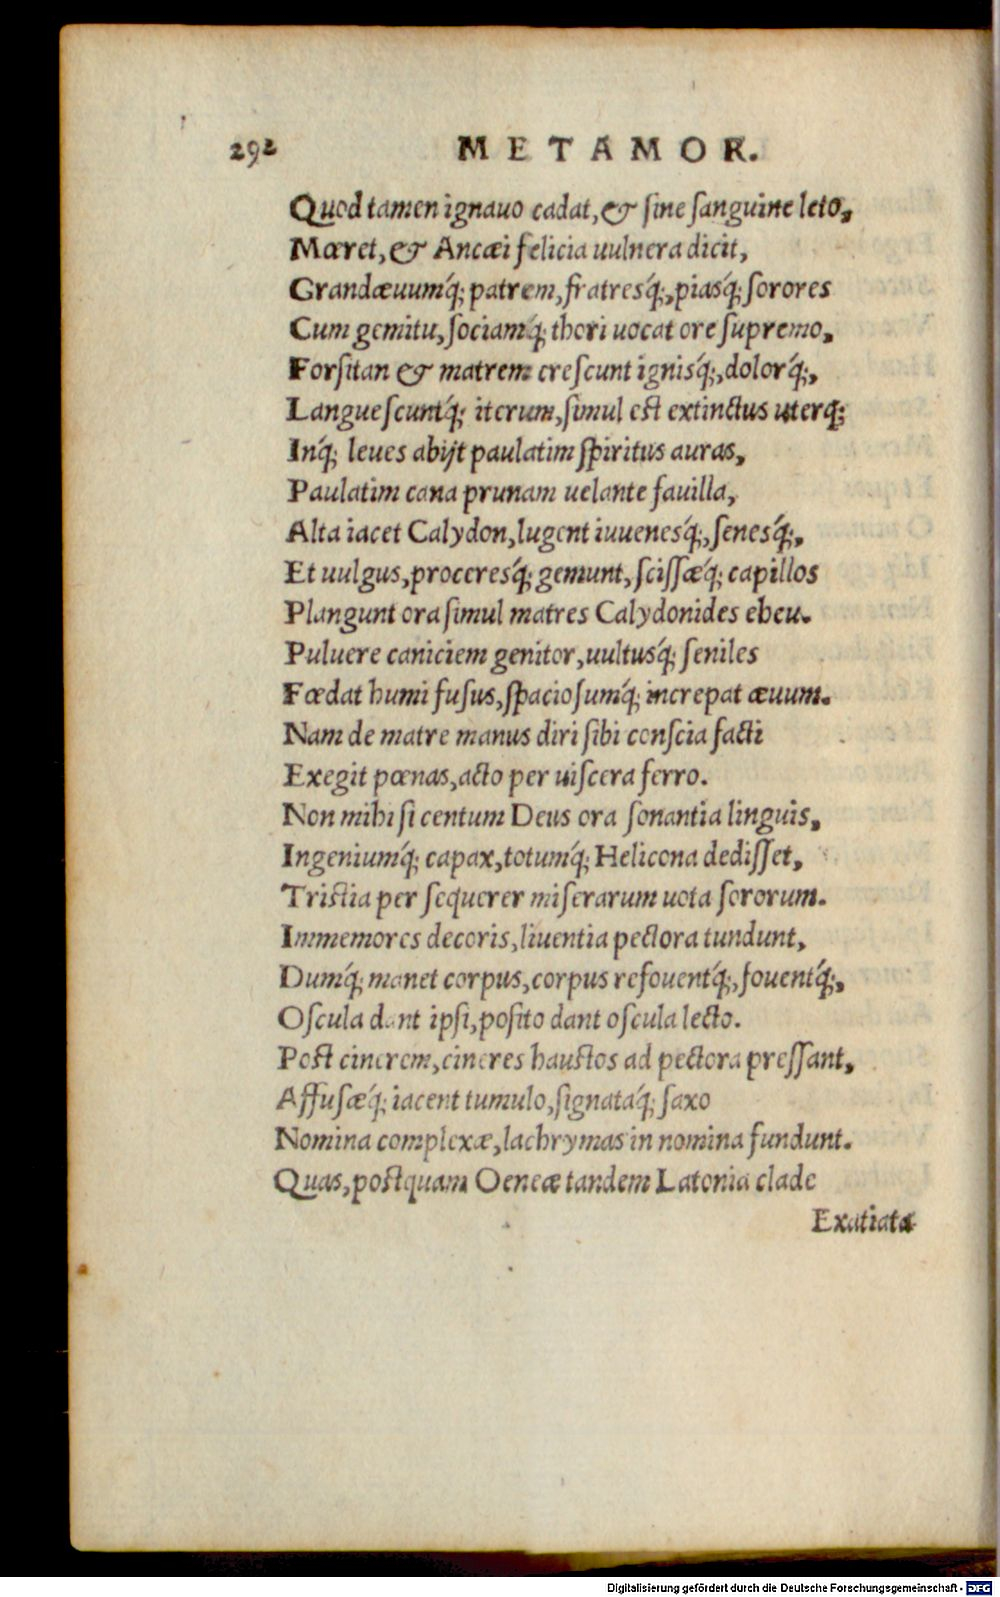 292 METAMOR.
Quod tamen ignauo cadat, & ſine ſanguine leto,
Mœret, & Ancæi felicia uulnera dicit,
Grandæuumq́; patrem, fratresq́;, piasq́; ſorores
Cum gemitu, ſociamq́; thori uocat ore ſupremo,
Forſitan & matrem creſcunt ignisq́;, dolorq́;,
Langueſcuntq́; iterum, ſimul eſt extinctus uterq;
Inq́; leues abijt paulatim ſpiritus auras,
Paulatim cana prunam uelante fauilla,
Alta iacet Calydon, lugent iuuenesq́;, ſenesq́;,
Et uulgus, proceresq́; gemunt, ſciſſæq́; capillos
Plangunt ora ſimul matres Calydonides eheu.
Puluere caniciem genitor, uultusq́; ſeniles
Fœdat humi fuſus, ſpacioſumq́; increpat æuum.
Nam de matre manus diri ſibi conſcia facti
Exegit pœnas, acto per uiſcera ferro.
Non mihi ſi centum Deus ora ſonantia linguis,
Ingeniumq́; capax, totumq́; Helicona dediſſet,
Triſtia per ſequerer miſerarum uota ſororum.
Immemores decoris, liuentia pectora tundunt,
Dumq́; manet corpus, corpus refouentq́;, fouentq́;,
Oſcula dant ipſi, poſito dant oſcula lecto.
Poſt cinerem, cineres hauſtos ad pectora preſſant,
Affuſæq́; iacent tumulo, ſignataq́; ſaxo
Nomina complexæ, lachrymas in nomina fundunt.
Quas, poſtquam Oeneæ tandem Latonia clade
Exatiata
Digitalisierung gefördert durch die Deutsche Forschungsgemeinschaft - DFG